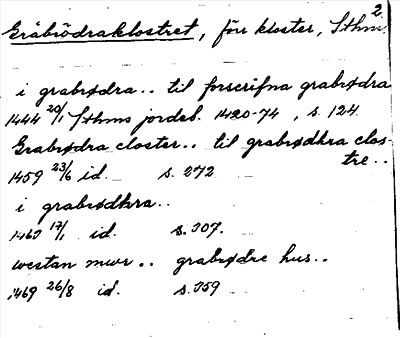 2.
Gråbrödraklostret, förr kloster, Sthm.
i grabrødra.. til forscrifna grabrødra
1444 20/1 Sthms jordeb. 1420-74, s. 124
Grabrødra closter.. til grabrødhra clos-
tre..
1459 23/6 id. s. 272
i grabrødhra..
1463 17/1 id. s. 307.
westan mwr.. grabrødre hus..
1469 26/8 id. s. 359